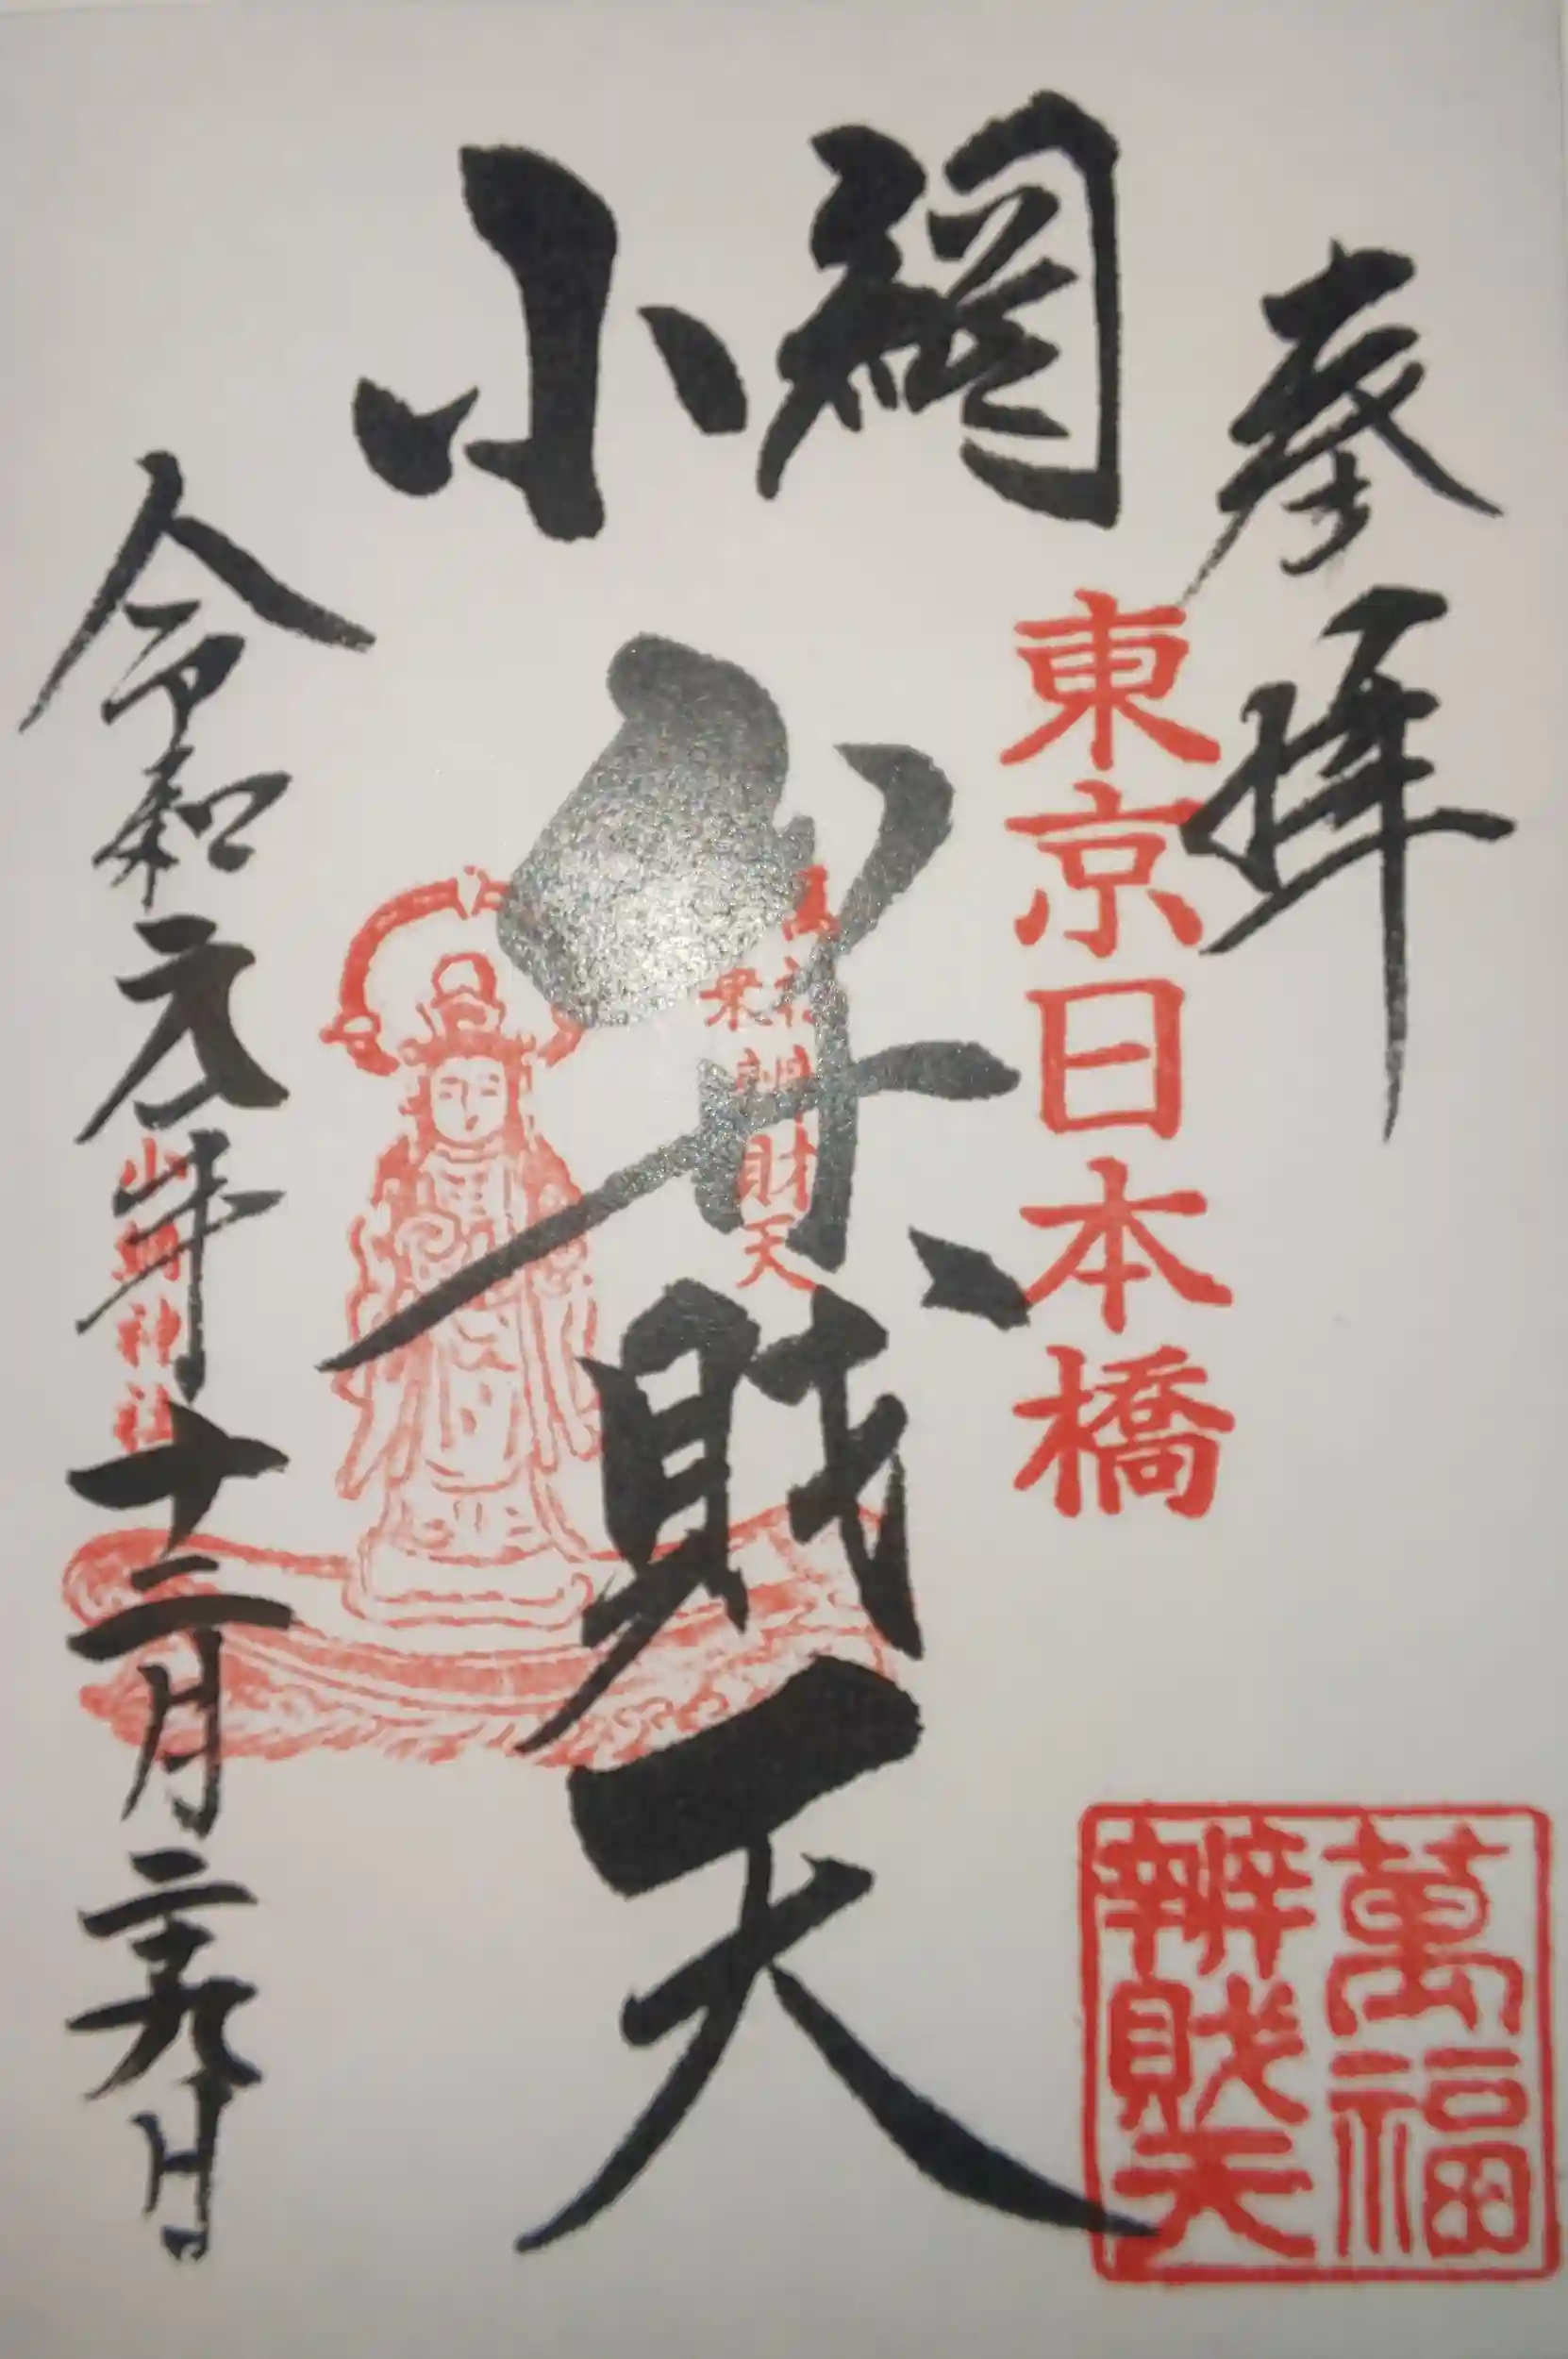 奉拝
東京日本橋
小網
弁財天
財天
令和元年十二月二十九日
小網神社
萬福
辨財天